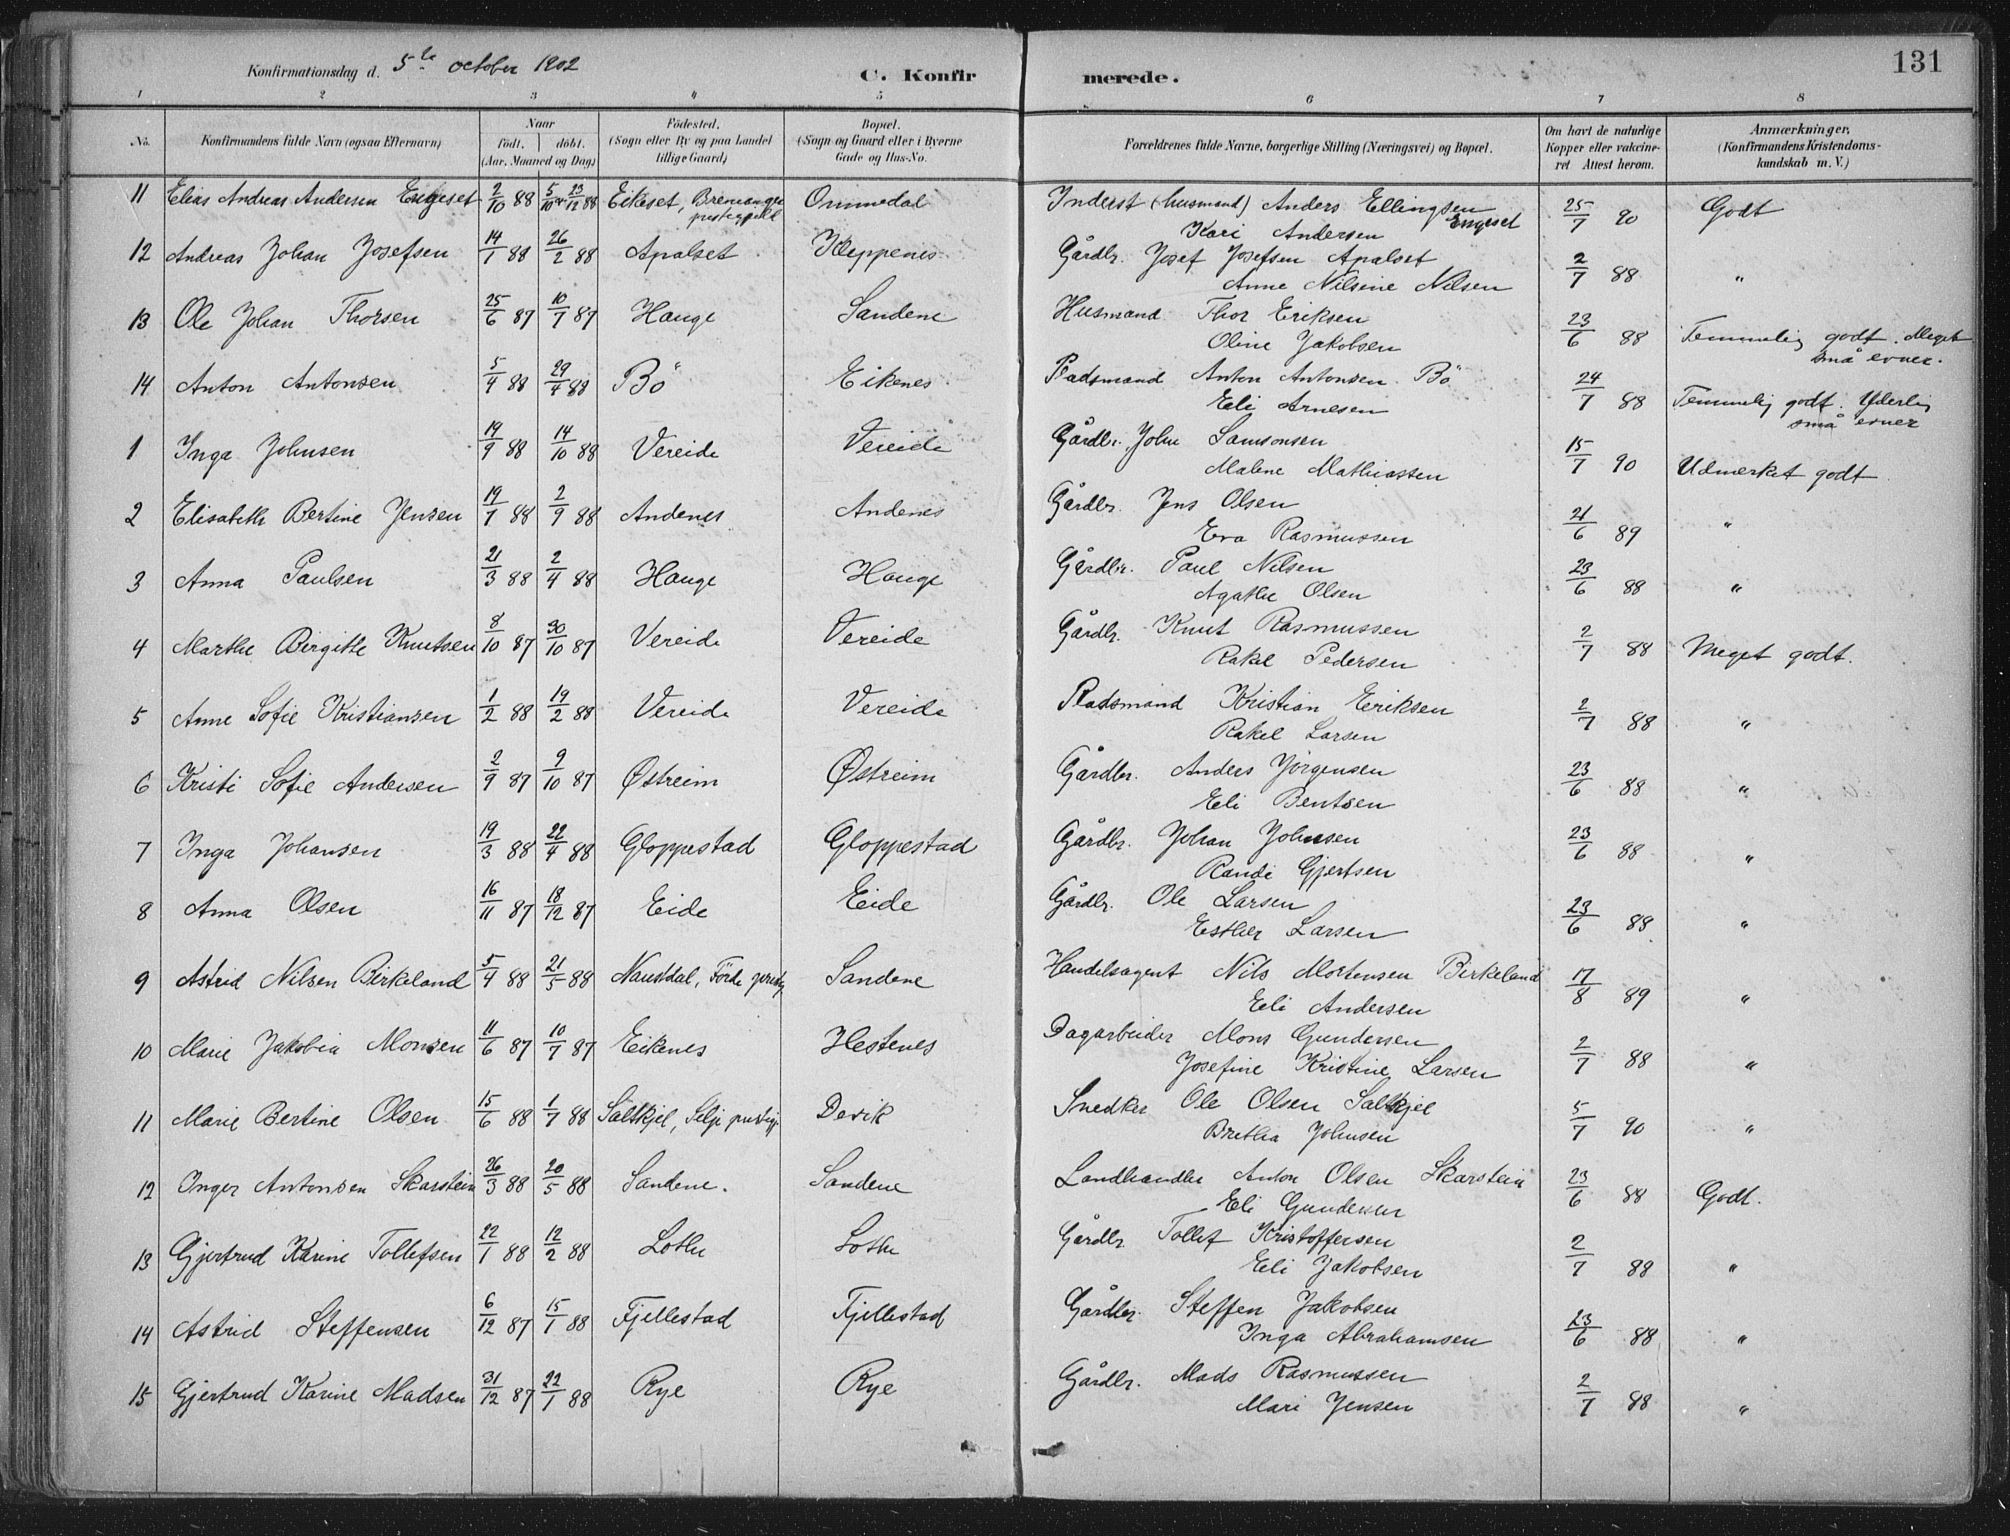 Konfirmationsdag d. 5te october 1902
C. Konfirmerede.
131
1 2 3 4 5 6 7 8
No. Konfirmandens fulde Navn (ogsaa Efternavn) Naar født. døbt. (Aar, Maaned og Dag) Fødested. (Sogn eller By og paa Landet tillige Gaard) Bopæl. (Sogn og Gaard eller i Byerne Gade og Hus-No. Forældrenes fulde Navne, borgerlige Stilling (Næringsvei) og Bopæl. Om havt de naturlige Kopper eller vakcineret Attest herom. Anmærkninger. (Konfirmandens Kristendomskundskab m. V.)
11 Elias Andreas Andersen Engeset 2/10 88 5/10 23/12 88 Eikeset, Bremanger Ommedal Inderst (husmand) Anders Ellingsen Engeset 25/7 90 Godt
Kari Andersen
12 Andreas Johan Josefsen 14/1 88 26/2 88 Apalset Kleppenes Gårdbr. Josef Josefsen Apalset 2/7 88 "
Anne Nilsine Nilsen
13 Ole Johan Thorsen 25/6 87 10/7 87 Hauge Sandene Husmand Thor Eriksen 23/6 88 Temmelig godt. Meget
Oline Jakobsen små evner.
14 Anton Antonsen 5/4 88 29/4 88 Bö Eikenes Pladsmand Anton Antonsen Bö 24/7 88 Temmelig godt. Yderlig
Eli Arnesen små evner
1 Inga Johnsen 19/9 88 14/10 88 Vereide Vereide Gårdbr. John Samsonsen 15/7 90 Udmerket godt
Malene Mathiassen
2 Elisabeth Bertine Jensen 19/7 88 2/9 88 Andenes Andenes Gårdbr. Jens Olsen 21/6 89 "
Eva Rasmussen
3 Anna Paulsen 21/3 88 2/4 88 Hauge Hauge Gårdbr. Paul Nilsen 23/6 88 "
Agathe Olsen
4 Marthe Birgitte Knutsen 8/10 87 30/10 87 Vereide Vereide Gårdbr. Knut Rasmussen 2/7 88 Meget godt.
Rakel Pedersen
5 Anne Sofie Kristiansen 1/2 88 19/2 88 Vereide Vereide Pladsmand Kristian Eriksen 2/7 88 "
Rakel Larsen
6 Kristi Sofie Andersen 2/9 87 9/10 87 Østreim Østreim Gårdbr. Anders Jörgensen 23/6 88 "
Eli Bentsen
7 Inga Johansen 19/3 88 22/4 88 Gloppestad Gloppestad Gårdbr. Johan Johnsen 23/6 88 "
Randi Gjertsen
8 Anna Olsen 16/11 87 18/12 87 Eide Eide Gårdbr. Ole Larsen 23/6 88 "
Esther Larsen
9 Astrid Nilsen Birkeland 5/4 88 21/5 88 Naustdal, Förde Sandene Handelsagent Nils Mortensen Birkeland 17/8 89 "
Eli Andersen
10 Marie Jakobia Monsen 11/6 87 10/7 87 Eikenes Hestenes Dagarbeider Mons Gundersen 2/7 88 "
Josefine Kristine Larsen
11 Marie Bertine Olsen 15/6 88 1/7 88 Saltkjel, Selje Devik Snedker Ole Olsen Saltkjel 5/7 90 "
Bretha Johnsen
12 Inger Antonsen Skarstein 26/3 88 20/5 88 Sandene. Sandene Landhandler Anton Olsen Skarstein 23/6 88 Godt.
Eli Gundersen
13 Gjertrud Karine Tollefsen 22/1 88 12/2 88 Lothe Lothe Gårdbr. Tollef Kristoffersen 2/7 88 "
Eli Jakobsen
14 Astrid Steffensen 6/12 87 15/1 88 Fjellestad Fjellestad Gårdbr. Steffen Jakobsen 23/6 88 "
Inga Abrahamsen
15 Gjertrud Karine Madsen 31/12 87 22/1 88 Rye Rye Gårdbr. Mads Rasmussen 2/7 88 "
Mari Jensen